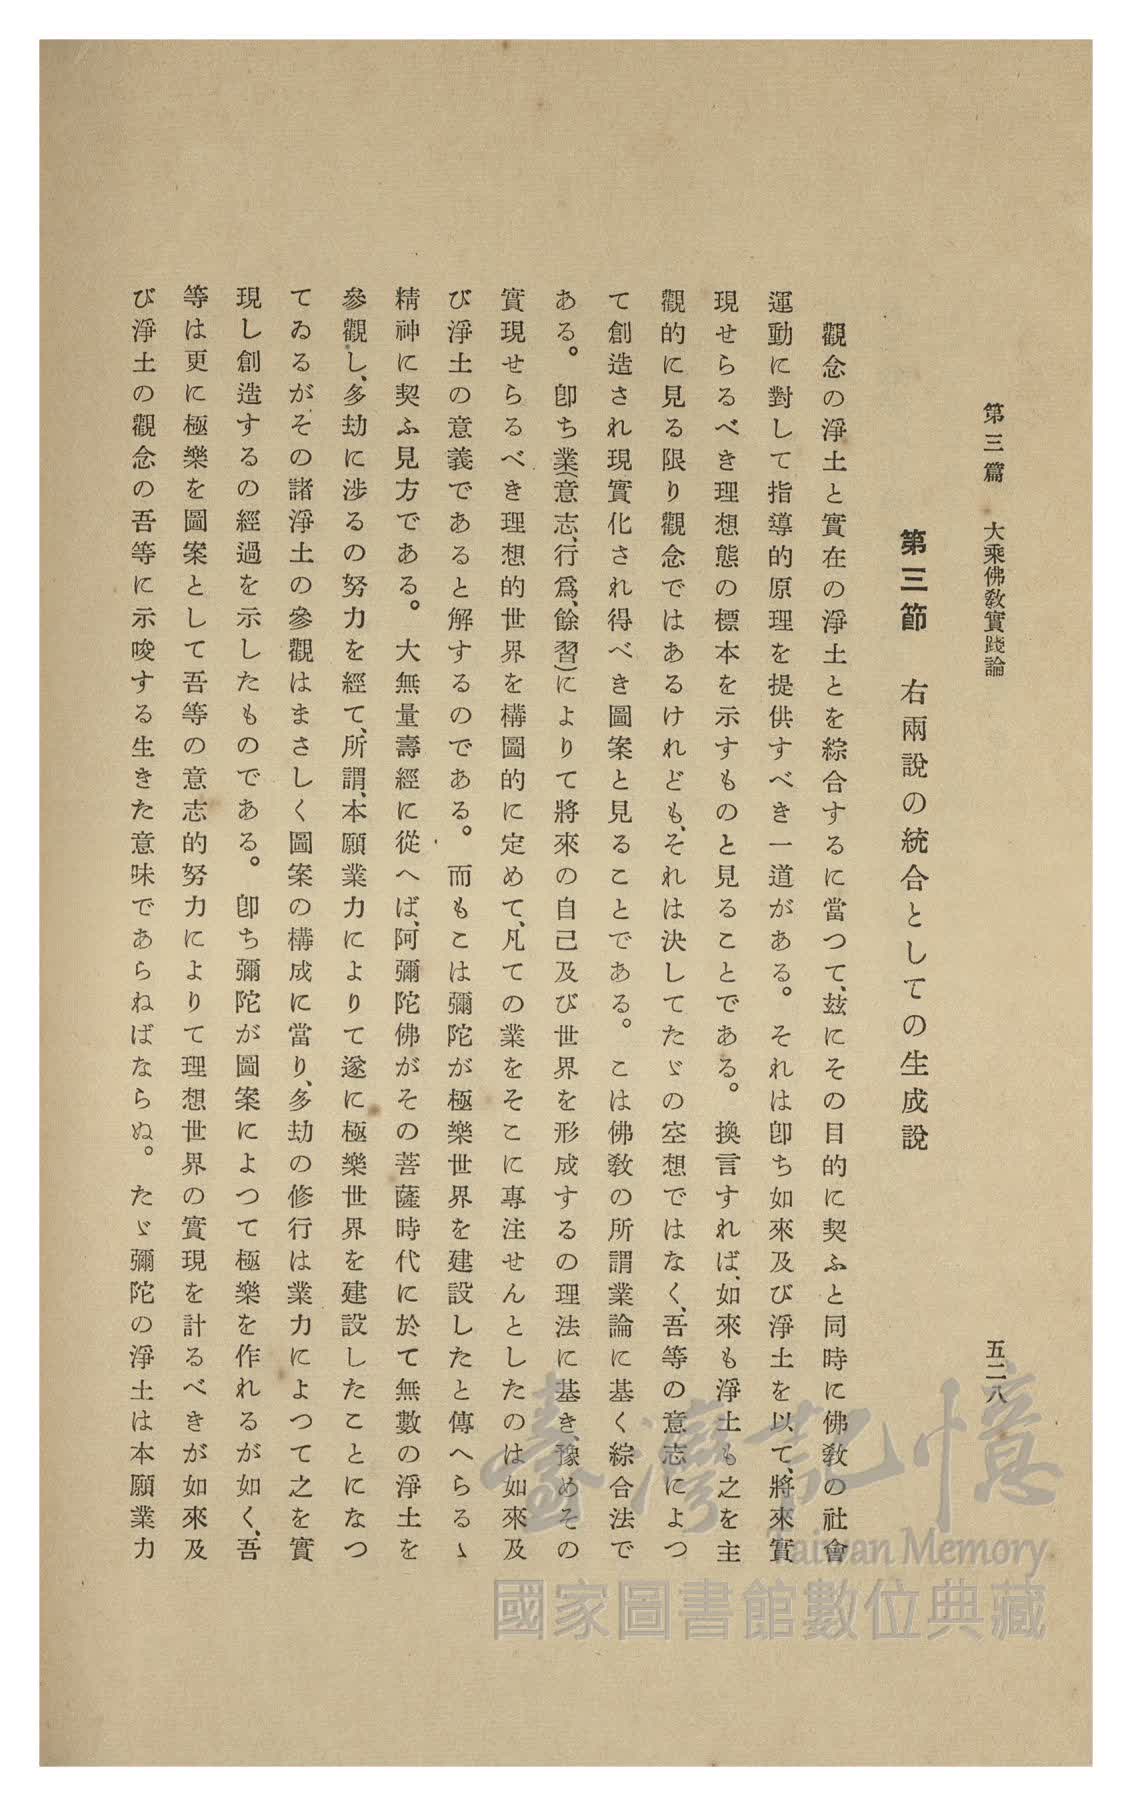 第三篇　大乘佛教實踐論　五二八
第三節　右兩說の統合としての生成說
觀念の淨土と實在の淨土とを綜合するに當つて、玆にその目的に契ふと同時に佛教の社會
運動に對して指導的原理を提供すべき一道がある。それは卽ち如來及び淨土を以て、將來實
現せらるべき理想態の標本を示すものと見ることである。換言すれば、如來も淨土も之を主
觀的に見る限り觀念ではあるけれども、それは決してたゞの空想ではなく、吾等の意志によつ
て創造され現實化され得べき圖案と見ることである。こは佛教の所謂業論に基く綜合法で
ある。卽ち業(意志、行爲、餘習)によりて將來の自己及び世界を形成するの理法に基き、豫めその
實現せらるべき理想的世界を構圖的に定めて、凡ての業をそこに專注せんとしたのは如來及
び淨土の意義であると解するのである。而もこは彌陀が極樂世界を建設したと傳へらるゝ
精神に契ふ見方である。大無量壽經に從へば、阿彌陀佛がその菩薩時代に於て無數の淨土を
參觀し、多劫に涉るの努力を經て、所謂、本願業力によりて遂に極樂世界を建設したことになつ
てゐるがその諸淨土の參觀はまさしく圖案の構成に當り、多劫の修行は業力によつて之を實
現し創造するの經過を示したものである。卽ち彌陀が圖案によつて極樂を作れるが如く、吾
等は更に極樂を圖案として吾等の意志的努力によりて理想世界の實現を計るべきが如來及
び淨土の觀念の吾等に示唆する生きた意味であらねばならぬ。たゞ彌陀の淨土は本願業力
臺灣記憶
Taiwan Memory
國家圖書館數位典藏